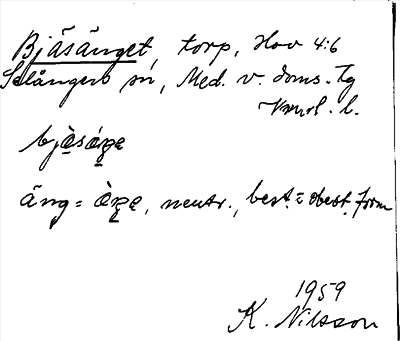 Bjäsänget, torp, Hov 4:6
Selångers sn, Med. v. doms. tg
Vnrl. l.
bjäsáŋe
äng = àŋe, neutr., best. = obest. form
1959
K. Nilsson